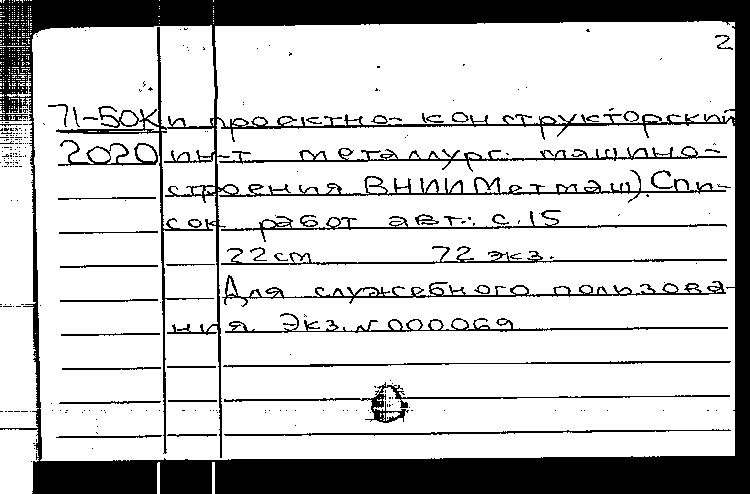 2
71-50К и проектно-конструкторский
2020 ин-т металлург. машино-
строения ВНИИМетмаш). Спи-
сок работ авт.: с.15
22см 72 экз.
Для служебного пользова-
ния. Экз.N000069